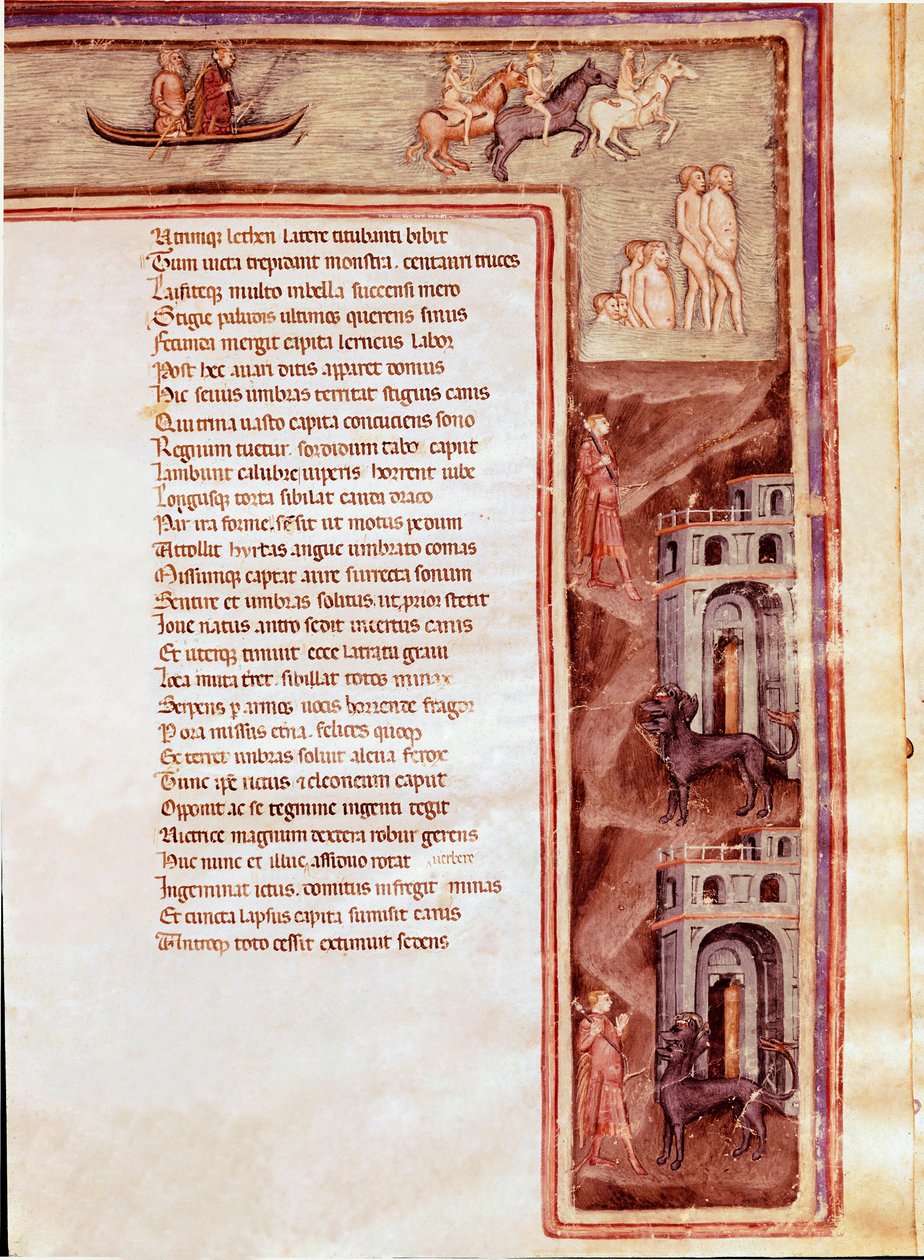 Utrinq; lethen latere titubanti bibit
Tum victa trepidant monstra. centauri truces
Lafiteq; multo in bella succensi mero
Stigie paludis ultimos querens sinus
Fecunda mergit capita lerneus labor
Post hec auari ditis apparet domus
Hic seuus umbras territat stigius canis
Qui trina uasto capita concuciens sono
Regnum tuetur. sordidum tabo caput
Lambunt calubre uiperis horrent iube
Longusq; torta sibilat cauda draco
Par ira forme. sensit ut motus pedum
Attollit hyrtas angue umbrato comas
Missumq; captat aure surrecta sonum
Sentire et umbras solitus. ut prior stetit
Ioue natus antro sedit incertus canis
Et uterq; timuit ecce latratu graui
Loca muta tret. sibillat totos minax
Serpens p armos uocis horrende fragor
P ora missus etna. felices quoq;
Exterret umbras soluit a leua ferox
Tunc ipe rictus & cleoneum caput
Opponit. ac se tegmine ingenti tegit
Uictrice magnum dextera robur gerens
Huc nunc et illuc assiduo rotat uerbere
Ingeminat ictus. domitus infregit minas
Et cuncta lapsus capita sumisit canis
Antroq; toto cessit extimuit sedens